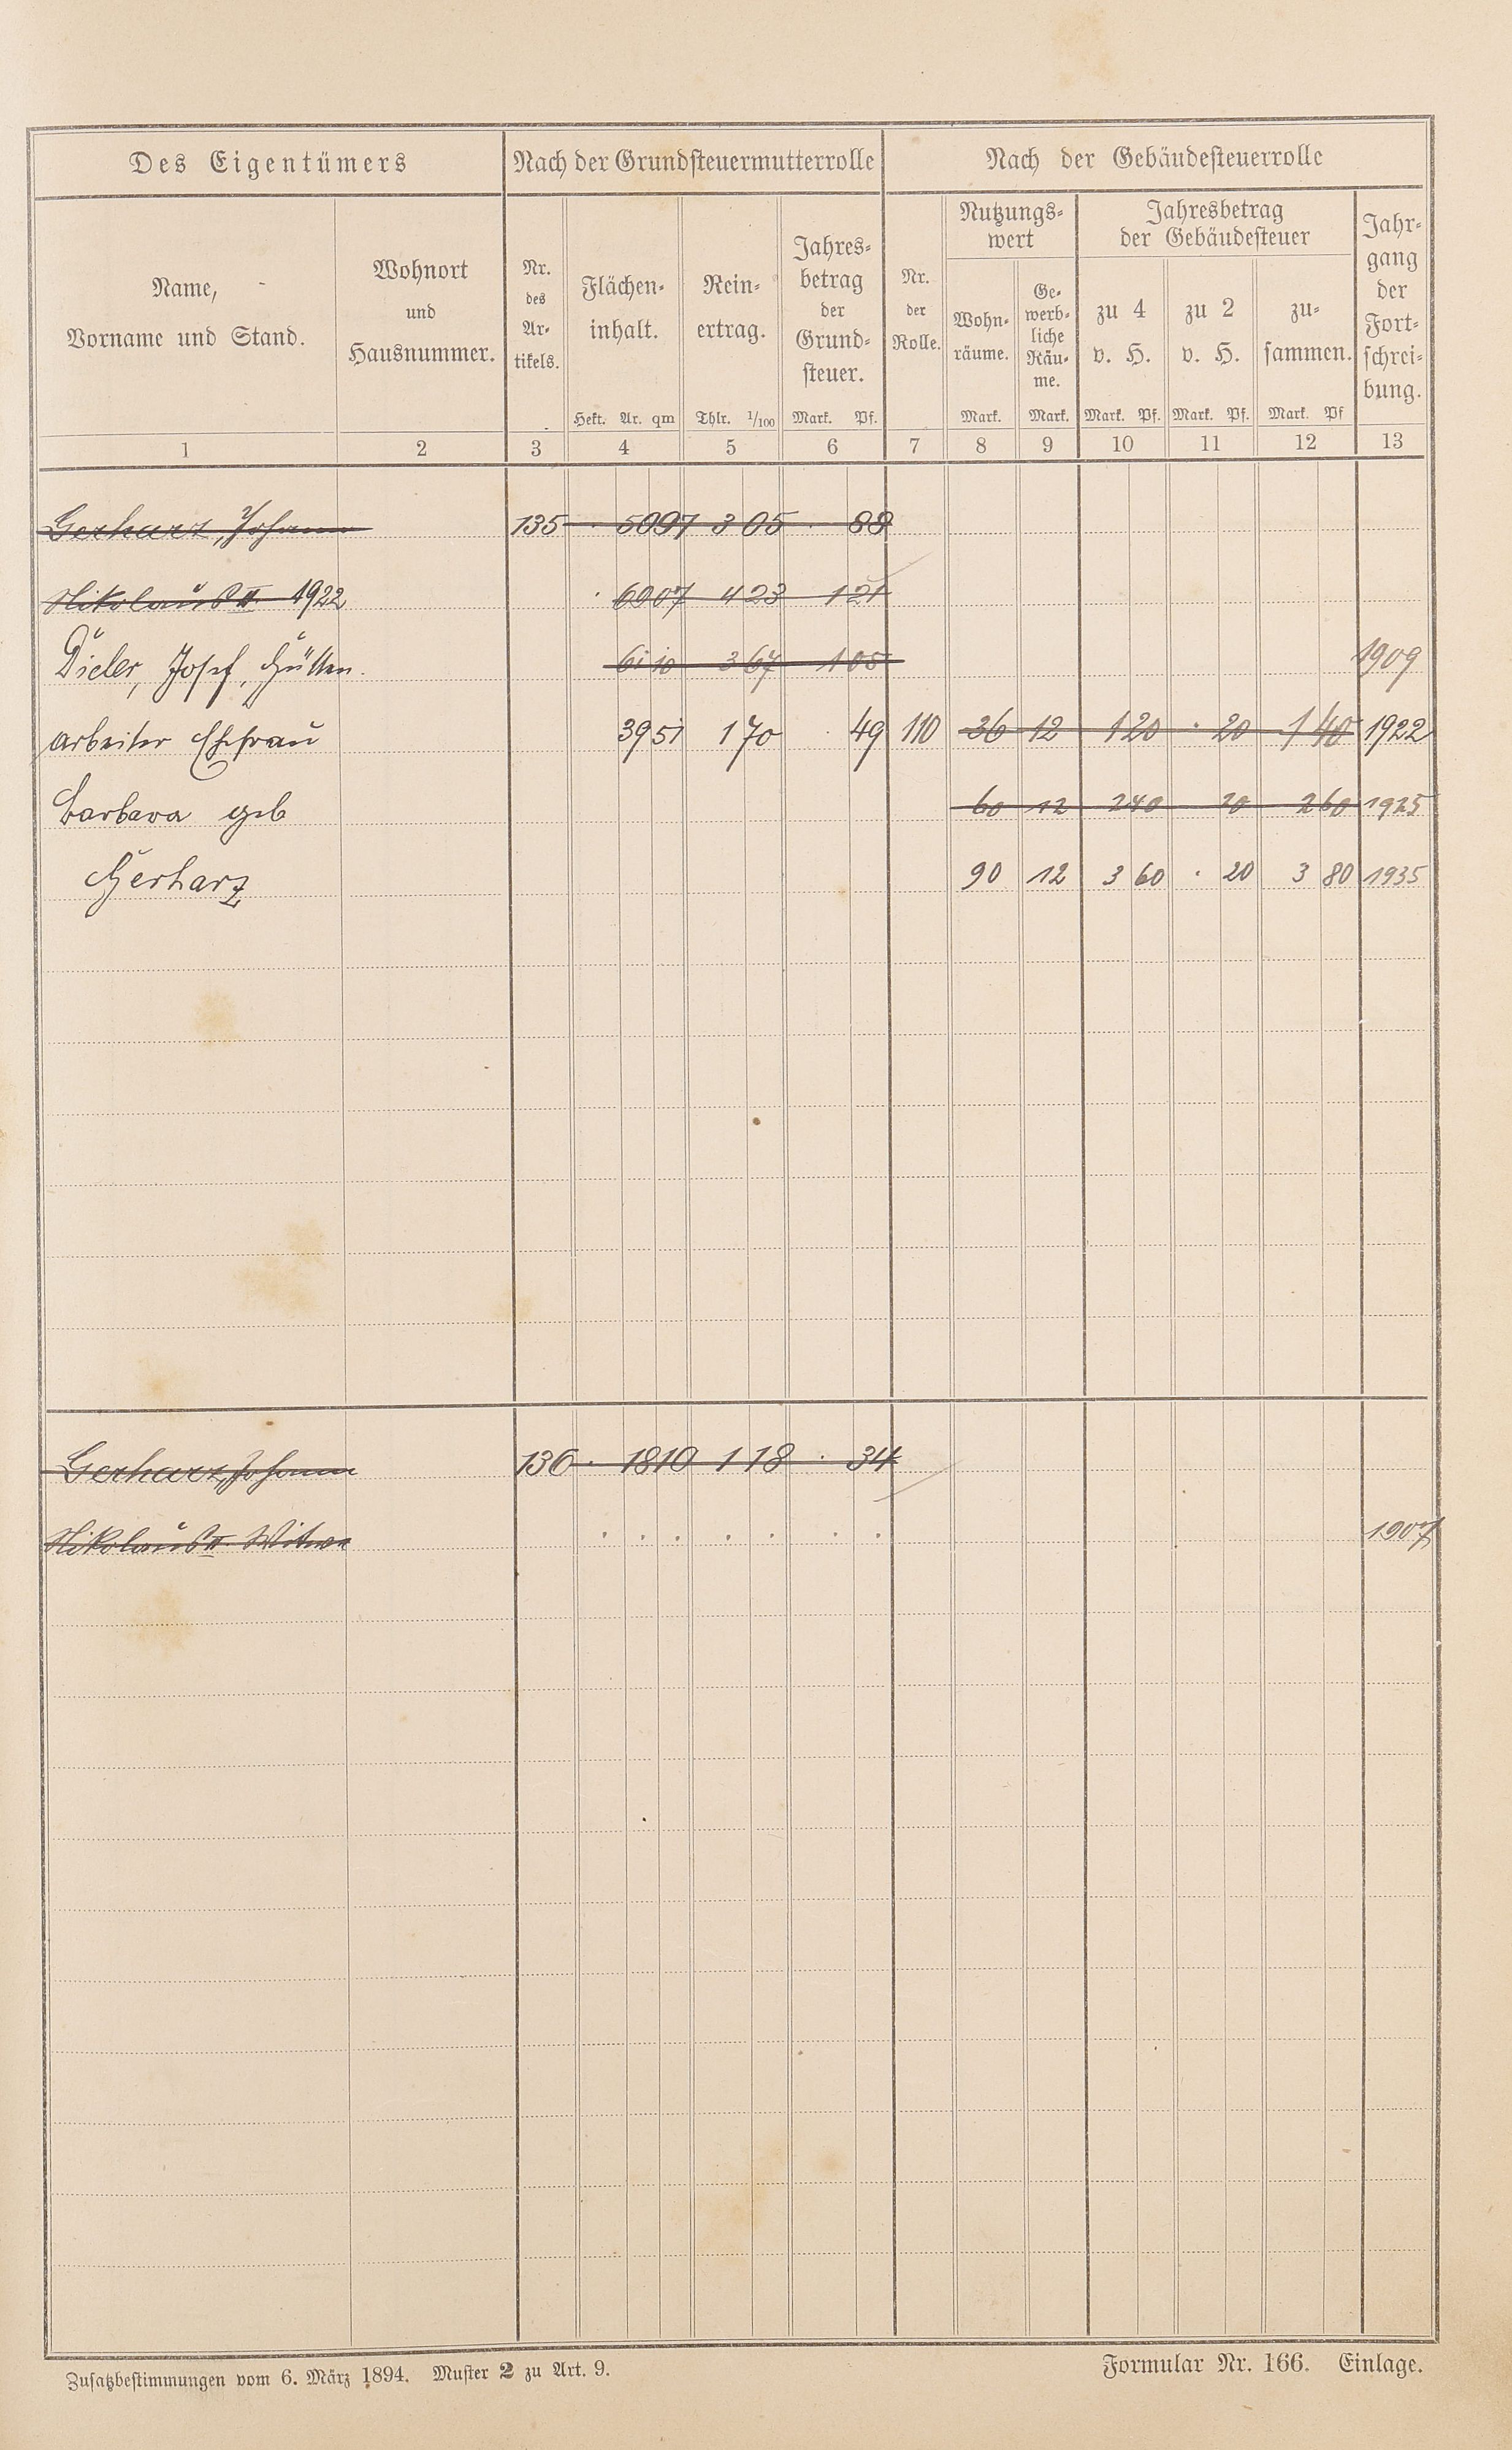 Des Eigentümers Nach der Grundsteuermutterrolle Nach der Gebäudesteuerrolle
Name,
Vorname und Stand.
Wohnort
und
Hausnummer.
Nr.
des
Ar-
tikels.
Flächen-
inhalt.
Hekt. Ar. qm
Rein-
ertrag.
Thlr. 1/100
Jahres-
betrag
der
Grund-
steuer.
Mark. Pf.
Nr.
der
Rolle.
Nutzungs-
wert
Wohn-
räume.
Mark.
Ge-
werb-
liche
Räu-
me.
Mark.
Jahresbetrag
der Gebäudesteuer
zu 4
v. H.
Mark. Pf.
zu 2
v. H.
Mark. Pf.
zu-
sammen.
Mark. Pf
Jahr-
gang
der
Fort-
schrei-
bung.
1 2 3 4 5 6 7 8 9 10 11 12 13
Gerharz, Johann 135 . 5097 305 . 88
Nikolaus II. 1922 . 6007 423 121
Dieler, Josef, Hütten. 6110 367 105 1909
arbeiter Ehefrau 3951 170 . 49 110 36 12 1 20 . 20 1 40 1922
Barbara geb 60 12 2 40 20 2 60 1925
Gerharz 90 12 3 60 . 20 3 80 1935
Gerharz, Johann 136 . 1810 118 . 34
Nikolaus II. Witwe . . . . . . . 1907
Zusatzbestimmungen vom 6. März 1894. Muster 2 zu Art. 9. Formular Nr. 166. Einlage.